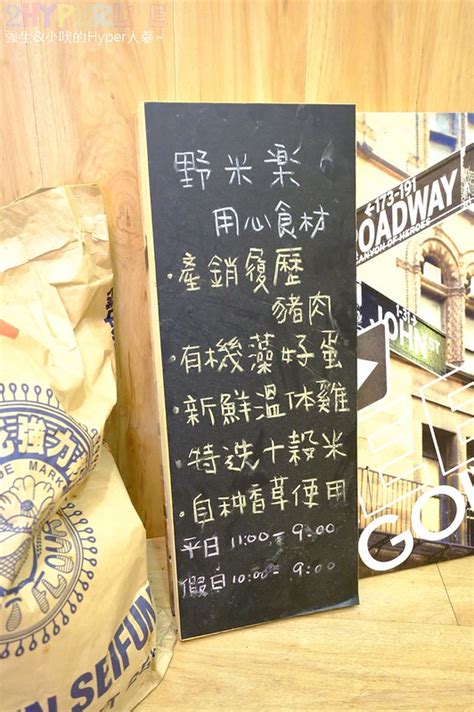 2HYPERLIFE
強生&小吠的Hyper人蔘~
野米樂
用心食材
·產銷履歷
豬肉
·有機藻好蛋
·新鮮溫体雞
·特选十穀米
·自种香草使用
平日 11:00 - 9:00
假日 10:00 - 9:00
←173-191
BROADWAY
CANYON OF HEROES
JOHN ST
GO
強力
DE MARK
N SEIFUN